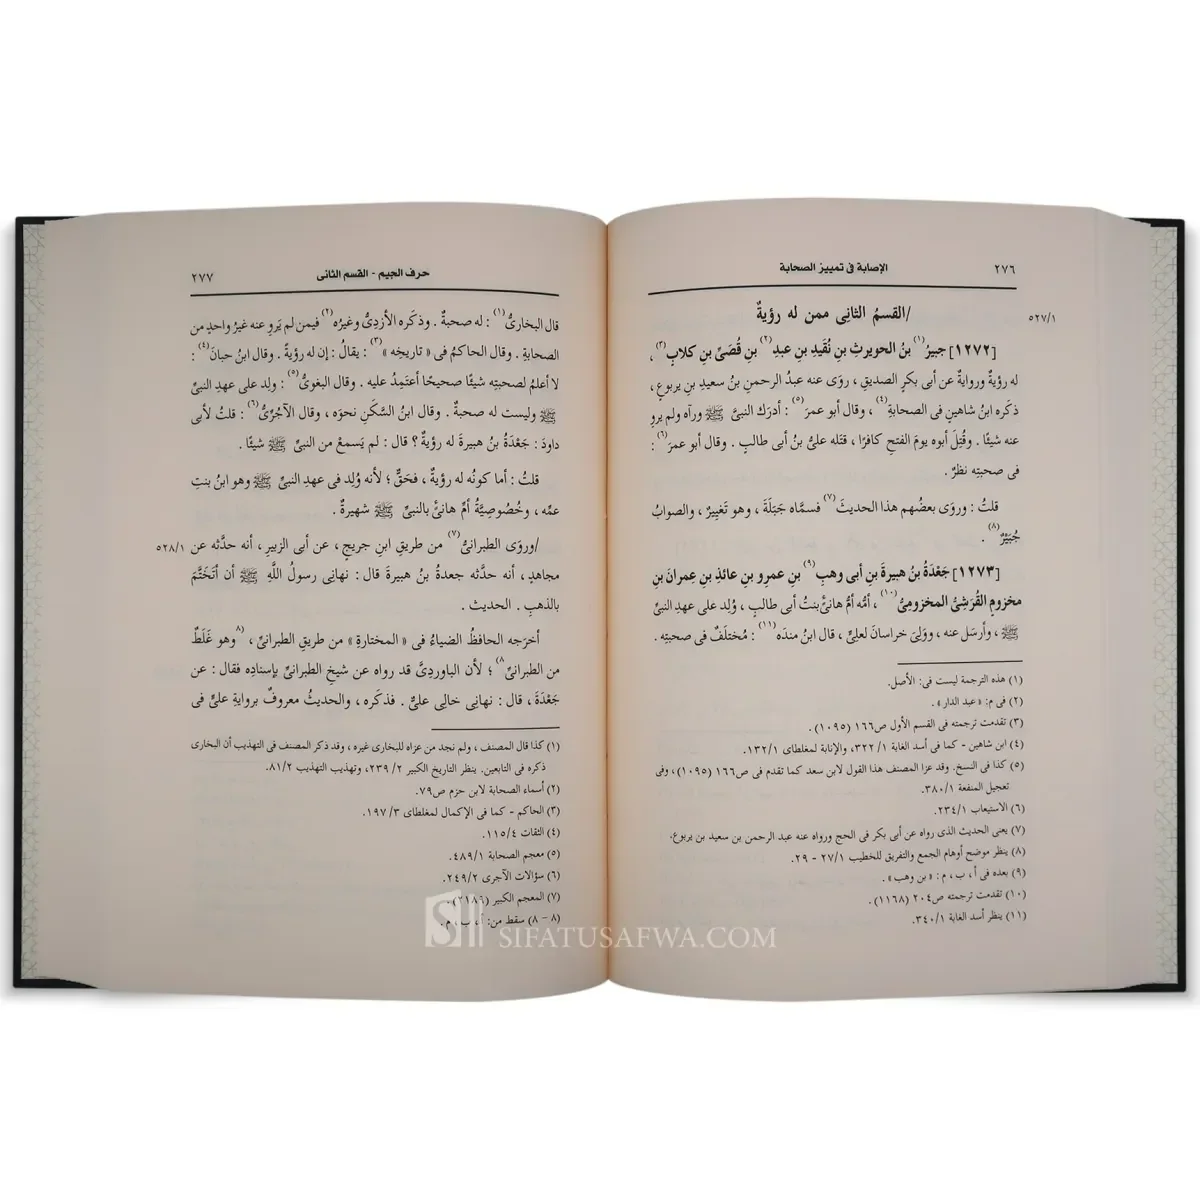 ٢٧٦
الإصابة فى تمييز الصحابة
/القسمُ الثانِى ممن له رؤيةٌ
٥٢٧/١
[١٢٧٢] جبيرُ(١) بنُ الحويرثِ بنِ نُقَيدِ بنِ عبدِ(٢) بنِ قُصَىِّ بنِ كلابٍ(٣) ،
له رؤيةٌ وروايةٌ عن أبى بكرٍ الصديقِ ، روَى عنه عبدُ الرحمنِ بنُ سعيدِ بنِ يربوعٍ ،
ذكَره ابنُ شاهينٍ فى الصحابةِ(٤) ، وقال أبو عمرَ(٥) : أدرَك النبىَّ ﷺ ورآه ولم يروِ
عنه شيئًا . وقُتِل أبوه يومَ الفتحِ كافرًا ، قتَله علىُّ بنُ أبى طالبٍ . وقال أبو عمرَ(٦) :
فى صحبتِه نظرٌ .
قلتُ : وروَى بعضُهم هذا الحديثَ(٧) فسمَّاه جَبَلَةَ ، وهو تَغيِيرٌ ، والصوابُ
جُبَيْرٌ(٨) .
[١٢٧٣] جَعْدَةُ بنُ هبيرةَ بنِ أبى وهبِ(٩) بنِ عمرِو بنِ عائذِ بنِ عمرانَ بنِ
مخزومٍ القُرَشِىُّ المخزومِىُّ(١٠) ، أمُّه أمُّ هانئٍ بنتُ أبى طالبٍ ، وُلِد على عهدِ النبىِّ
ﷺ ، وأرسَل عنه ، ووَلِىَ خراسانَ لعلىٍّ ، قال ابنُ منده(١١) : مُختلَفٌ فى صحبتِه .
(١) هذه الترجمة ليست فى: الأصل.
(٢) فى م: «عبد الدار» .
(٣) تقدمت ترجمته فى القسم الأول ص١٦٦ (١٠٩٥) .
(٤) ابن شاهين - كما فى أسد الغابة ١/ ٣٢٢، والإنابة لمغلطاى ١٣٢/١.
(٥) كذا فى النسخ. وقد عزا المصنف هذا القول لابن سعد كما تقدم فى ص١٦٦ (١٠٩٥)، وفى
تعجيل المنفعة ٣٨٠/١.
(٦) الاستيعاب ٢٣٤/١.
(٧) يعنى الحديث الذى رواه عن أبى بكر فى الحج ورواه عنه عبد الرحمن بن سعيد بن يربوع.
(٨) ينظر موضح أوهام الجمع والتفريق للخطيب ٢٧/١ - ٢٩.
(٩) بعده فى أ ، ب ، م : «بن وهب» .
(١٠) تقدمت ترجمته ص٢٠٤ (١١٦٨) .
(١١) ينظر أسد الغابة ٣٤٠/١.
حرف الجيم - القسم الثانى
٢٧٧
قال البخارىُّ(١) : له صحبةٌ . وذكَره الأزدِىُّ وغيرُه(٢) فيمن لم يَروِ عنه غيرُ واحدٍ من
الصحابةِ . وقال الحاكمُ فى « تاريخِه »(٣) : يقالُ : إن له رؤيةً . وقال ابنُ حبانَ(٤) :
لا أعلمُ لصحبتِه شيئًا صحيحًا أعتَمِدُ عليه . وقال البغوىُّ(٥) : ولِد على عهدِ النبىِّ
ﷺ وليست له صحبةٌ . وقال ابنُ السَّكَنِ نحوَه ، وقال الآجُرِّىُّ(٦) : قلتُ لأبى
داودَ : جَعْدَةُ بنُ هبيرةَ له رؤيةٌ ؟ قال : لم يَسمعْ من النبىِّ ﷺ شيئًا .
قلتُ : أما كونُه له رؤيةٌ ، فحَقٌّ ؛ لأنه وُلِد فى عهدِ النبىِّ ﷺ وهو ابنُ بنتِ
عمِّه ، وخُصُوصِيَّةُ أمِّ هانئٍ بالنبىِّ ﷺ شهيرةٌ .
/وروَى الطبرانىُّ(٧) من طريقِ ابنِ جريجٍ ، عن أبى الزبيرِ ، أنه حدَّثه عن
٥٢٨/١
مجاهدٍ ، أنه حدَّثه جعدةُ بنُ هبيرةَ قال : نهانِى رسولُ اللَّهِ ﷺ أن أتَخَتَّمَ
بالذهبِ . الحديث .
أخرَجه الحافظُ الضياءُ فى « المختارةِ » من طريقِ الطبرانىِّ ، (٨وهو غَلَطٌ
من الطبرانىِّ٨) ؛ لأن الباوردِىَّ قد رواه عن شيخِ الطبرانىِّ بإسنادِه فقال : عن
جَعْدَةَ ، قال : نهانِى خالِى علىٌّ . فذكَره ، والحديثُ معروفٌ بروايةِ علىٍّ فى
(١) كذا قال المصنف ، ولم نجد من عزاه للبخارى غيره ، وقد ذكر المصنف فى التهذيب أن البخارى
ذكره فى التابعين. ينظر التاريخ الكبير ٢/ ٢٣٩، وتهذيب التهذيب ٨١/٢.
(٢) أسماء الصحابة لابن حزم ص٧٩.
(٣) الحاكم - كما فى الإكمال لمغلطاى ١٩٧/٣.
(٤) الثقات ١١٥/٤.
(٥) معجم الصحابة ٤٨٩/١.
(٦) سؤالات الآجرى ٢٤٩/٢.
(٧) المعجم الكبير (٢١٨٦).
(٨ - ٨) سقط من: أ ، ب ، م.
SIFATUSAFWA.COM